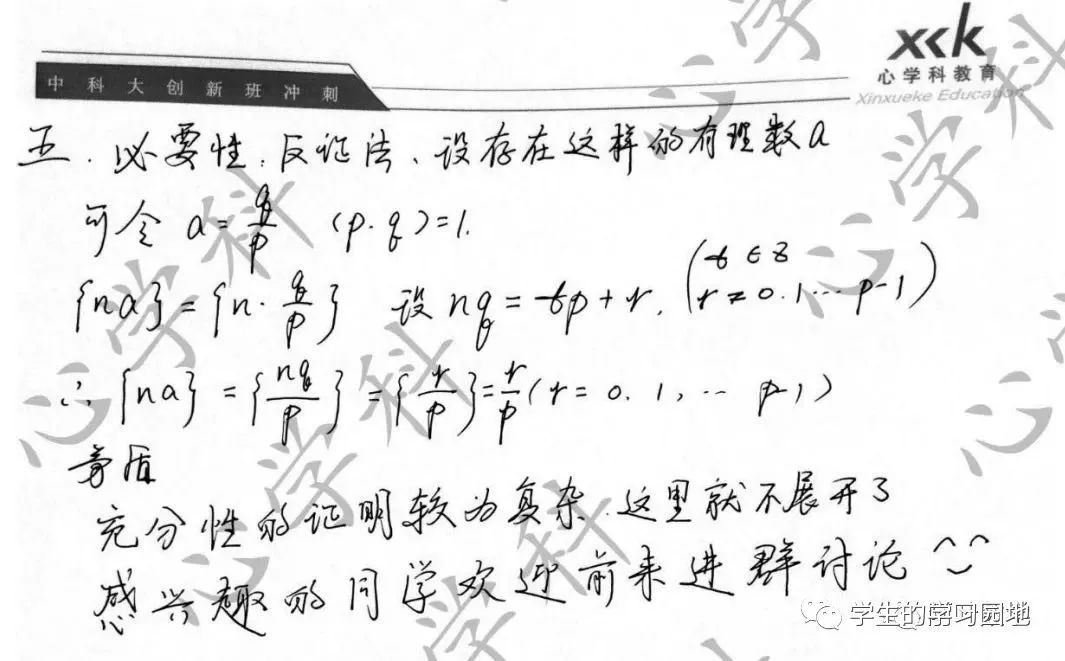 xck
心学科教育
Xinxueke Education
中科大创新班冲刺
五.必要性:反证法、设存在这样的有理数a
可令 a=q/p (p.q)=1.
{na}={n·q/p} 设nq=tp+r. (t∈Z r=0.1…p-1)
∴{na}={nq/p}={r/p}=r/p(r=0.1,…p-1)
矛盾
充分性的证明较为复杂.这里就不展开了
感兴趣的同学欢迎前来进群讨论
学生的学习园地
心学科
心学科
心学科
心学科